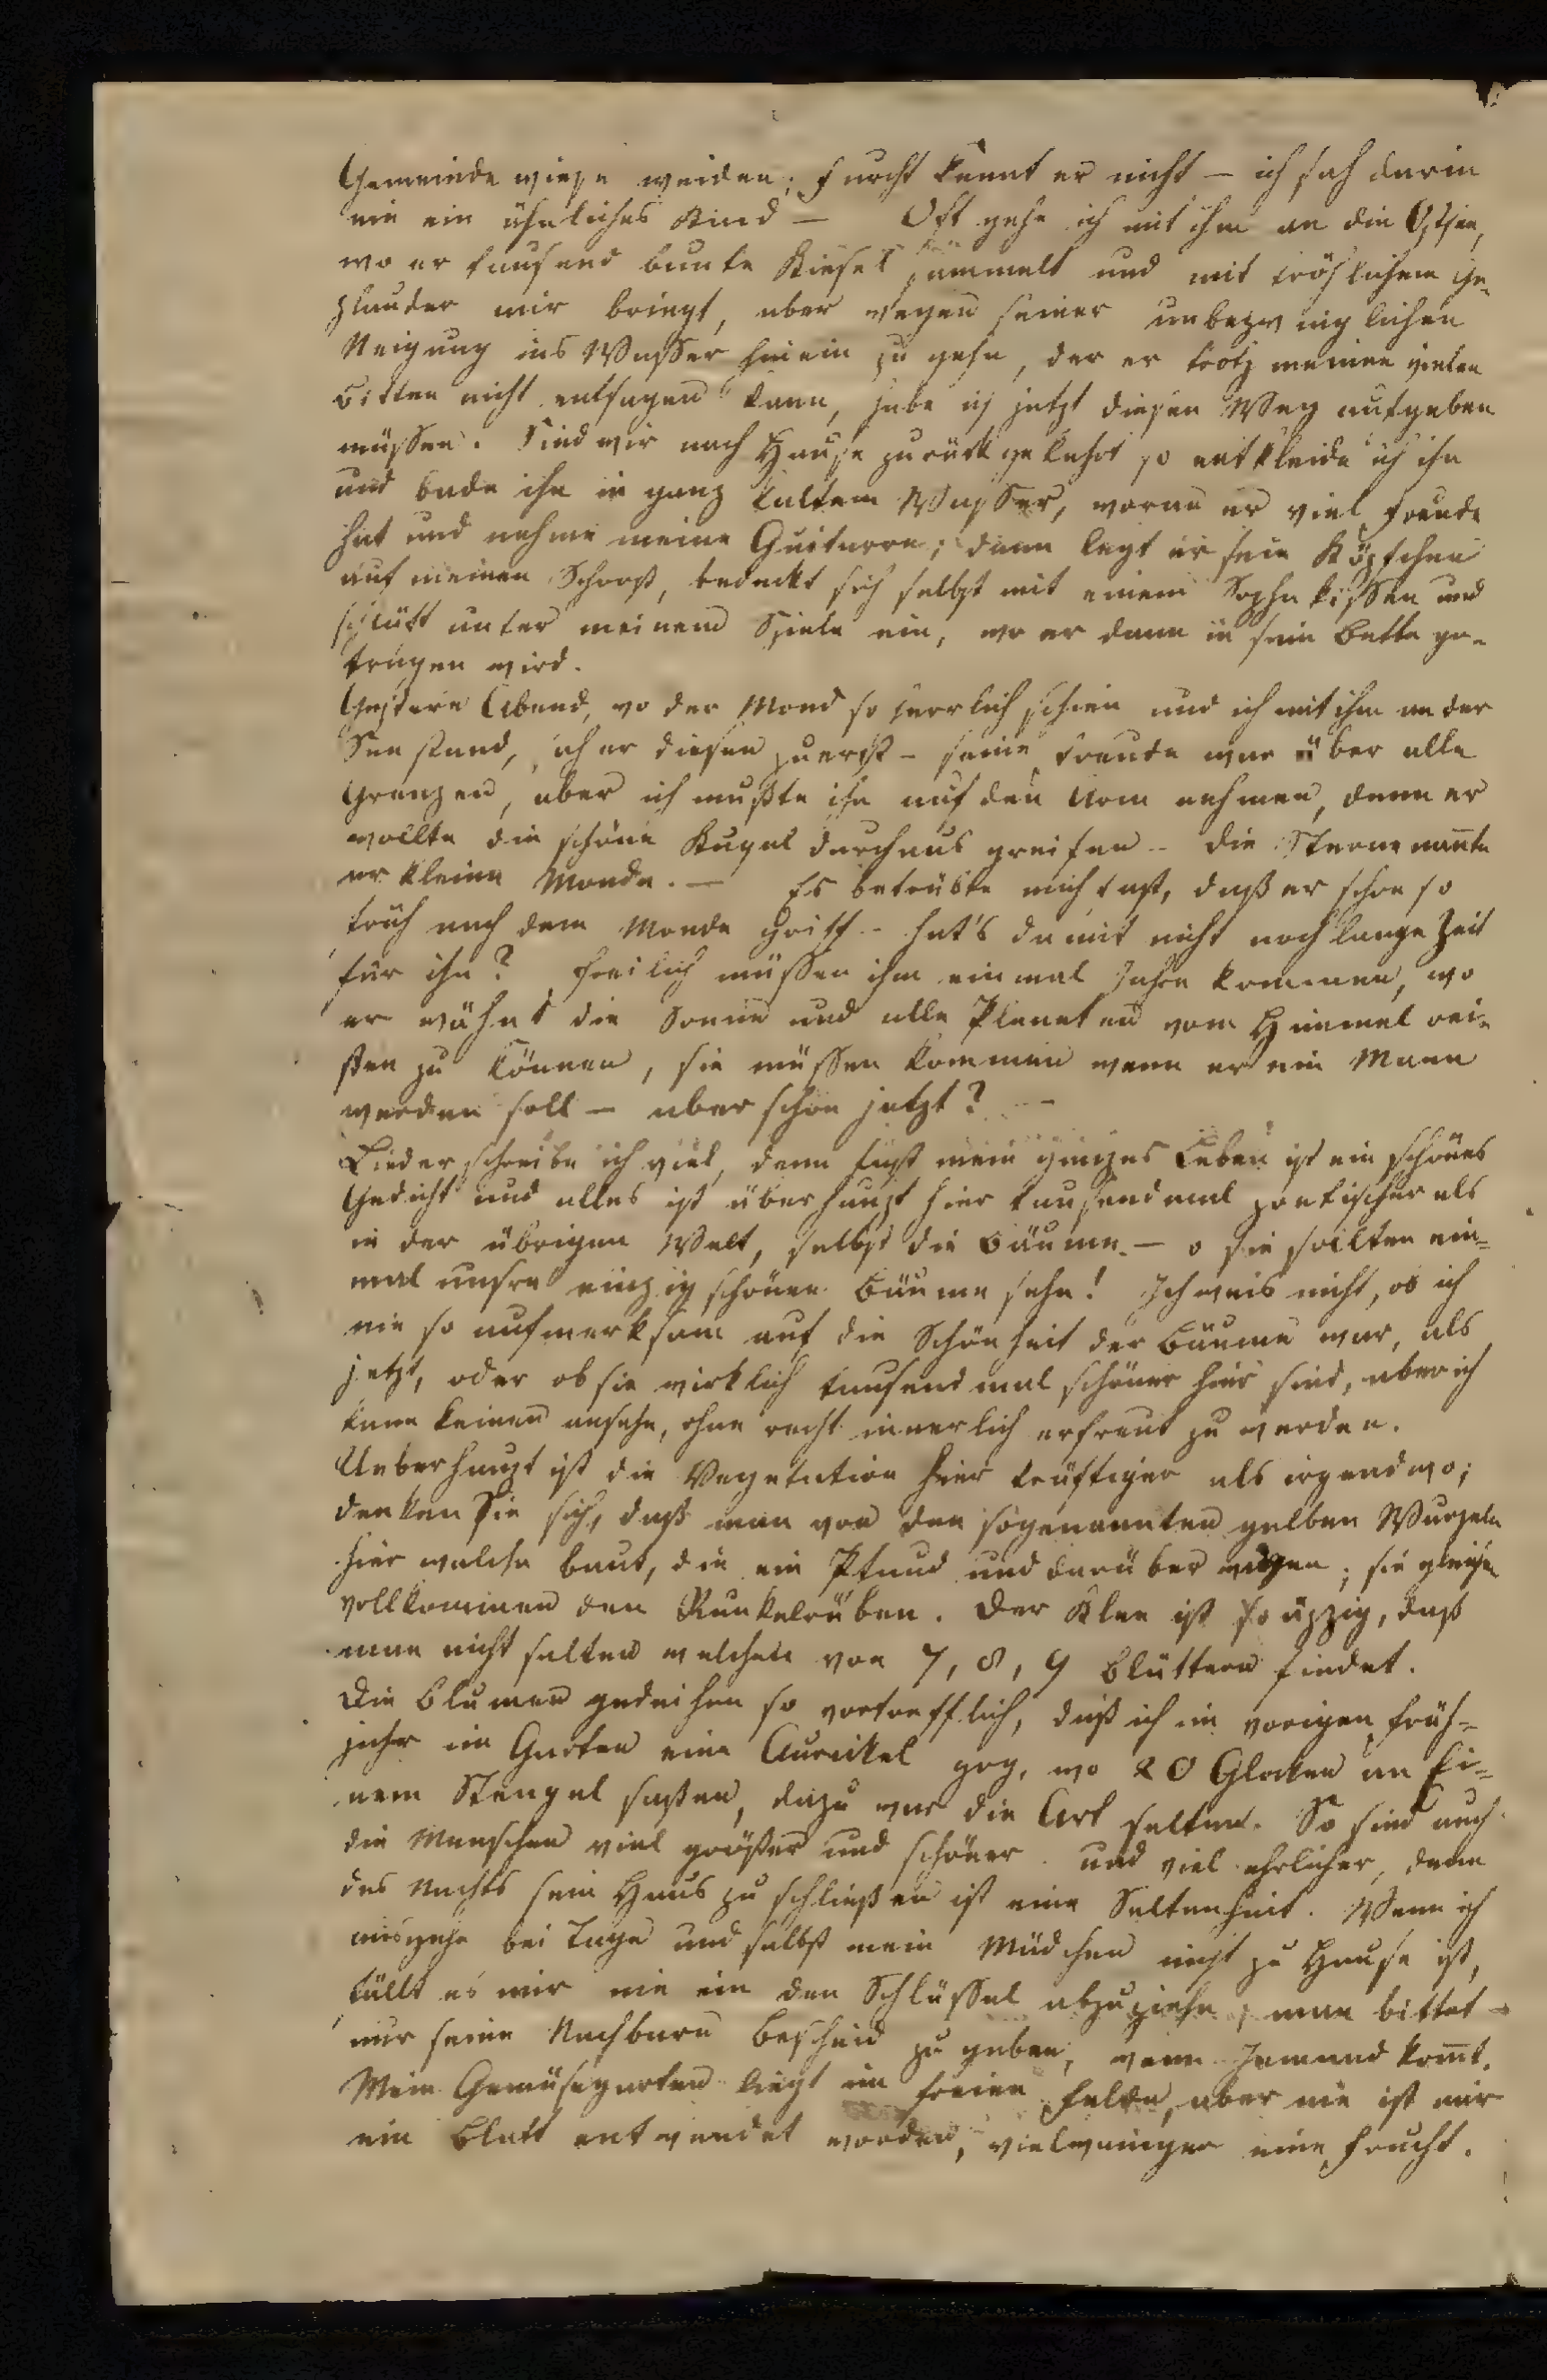 Gemeinde wiese weiden; Furcht kennt er nicht — ich sah darin
nie ein ähnliches Kind — Oft gehe ich mit ihm an die Ostsee,
wo er tausend bunte Kiesel sammelt und mit fröhlichem Ge-
plauder mir bringt, aber wegen seiner unbezwinglichen
Neigung ins Wasser hinein zu gehn, der er trotz meinen vielen
Bitten nicht entsagen kann, habe ich jetzt diesen Weg aufgeben
müssen. Sind wir nach Hause zurückgekehrt so entkleide ich ihn
und bade ihn in ganz kaltem Wasser, woran er viel Freude
hat und nehme meine Guitarre; dann legt er sein Köpfchen
auf meinen Schooß, bedeckt sich selbst mit einem Sophakissen und
schläft unter meinem Spiele ein, wo er dann in sein Bette ge-
tragen wird.
Gestern Abend, wo der Mond so herrlich schien und ich mit ihm an der
See stand, sah er diesen zuerst – seine Freude war über alle
Grenzen, aber ich mußte ihn auf den Arm nehmen, denn er
wollte die schöne Kugel durchaus greifen – die Sterne nannte
er kleine Monde. — Es betrübte mich fast, daß er schon so
früh nach dem Monde griff – hat's damit nicht noch lange Zeit
für ihn? Freilich müssen ihm einmal Jahre kommen, wo
er wähnt die Sonne und alle Planeten vom Himmel rei-
ßen zu können, sie müssen kommen wenn er ein Mann
werden soll — aber schon jetzt? —
Lieder schreibe ich viel, denn fast mein ganzes Leben ist ein schönes
Gedicht und alles ist überhaupt hier tausendmal poetischer als
in der übrigen Welt, selbst die Bäume. — o sie sollten ein-
mal unsre einzig schönen Bäume sehn! Ich weis nicht, ob ich
nie so aufmerksam auf die Schönheit der Bäume war, als
jetzt, oder ob sie wirklich tausendmal schöner hier sind, aber ich
kann keinen ansehn, ohne recht innerlich erfreut zu werden.
Ueberhaupt ist die Vegetation hier kräftiger als irgendwo;
denken Sie sich, daß man von den sogenannten gelben Wurzeln
hier welche baut, die ein Pfund und darüber wiegen; sie gleichen
vollkommen den Runkelrüben. Der Klee ist so üppig, daß
man nicht selten welchen von 7, 8, 9 Blättern findet.
Die Blumen gedeihen so vortrefflich, daß ich im vorigen Früh-
jahr im Garten eine Aurikel zog, wo 20 Glocken an Ei-
nem Stengel saßen, dazu war die Art selten. So sind auch
die Menschen viel größer und schöner und viel ehrlicher, denn
des Nachts sein Haus zu schließen ist eine Seltenheit. Wenn ich
ausgehe bei Tage und selbst mein Mädchen nicht zu Hause ist,
fällt es mir nie ein den Schlüssel abzuziehn; man bittet
nur seine Nachbarn Bescheid zu geben, wenn Jemand kommt.
Mein Gemüsegarten liegt im freien Felde, aber nie ist mir
ein Blatt entwendet worden, vielweniger eine Frucht.